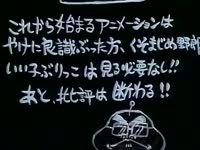 これから始まるアニメーションは
やけに良識ぶった方、くそまじめ野郎
いい子ぶりっこは見る必要なし!!
あと、批評は断わる!!